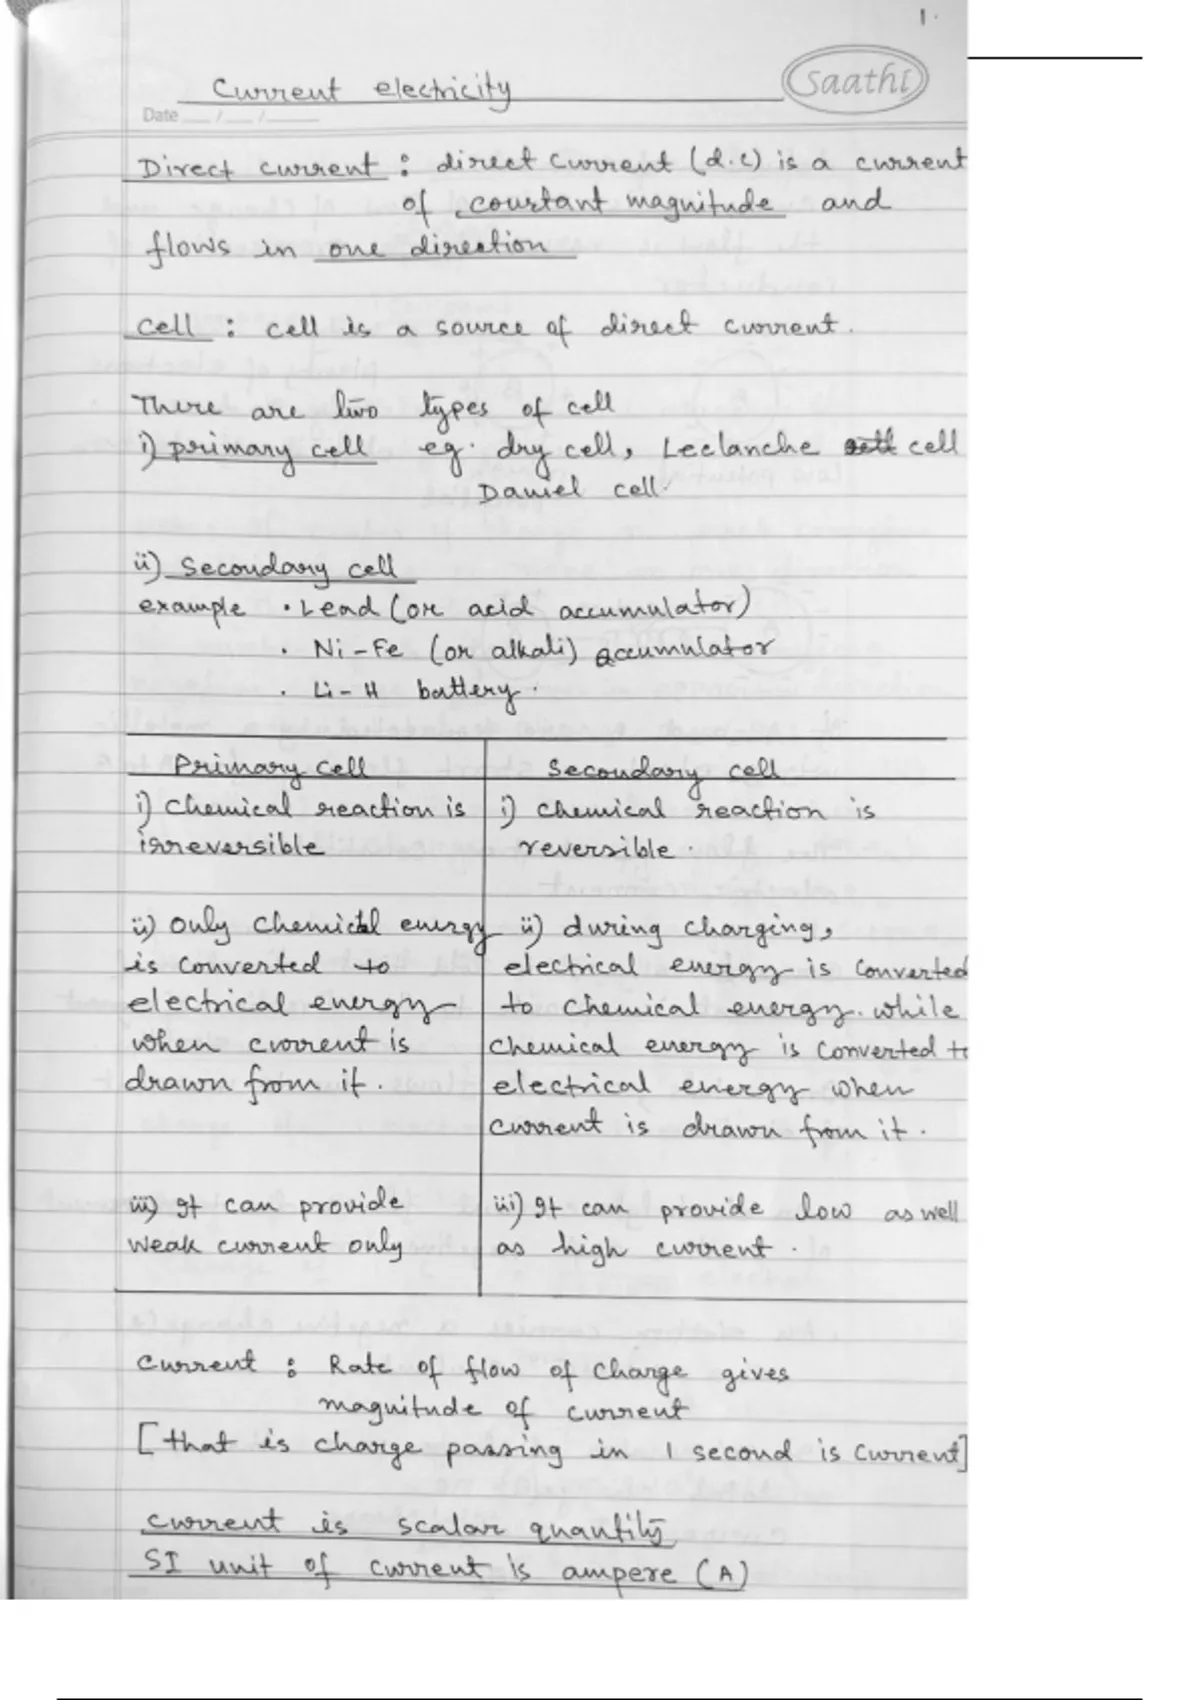 1.
Saathi
Current electricity
Date __/__/__
Direct current : direct current (d.c) is a current
of constant magnitude and
flows in one direction
cell : cell is a source of direct current.
There are two types of cell
i) primary cell eg. dry cell, Leclanche cell
Daniel cell.
ii) Secondary cell
example • Lead (or acid accumulator)
• Ni-Fe (or alkali) accumulator
• Li-H battery.
Primary cell
i) chemical reaction is
irreversible
ii) only chemical energy
is converted to
electrical energy
when current is
drawn from it.
iii) It can provide
weak current only
Secondary cell
i) chemical reaction is
reversible.
ii) during charging,
electrical energy is converted
to chemical energy. while
chemical energy is converted to
electrical energy when
current is drawn from it.
iii) It can provide low as well
as high current.
Current : Rate of flow of charge gives
magnitude of current
[that is charge passing in 1 second is current]
current is scalar quantity
SI unit of current is ampere (A)